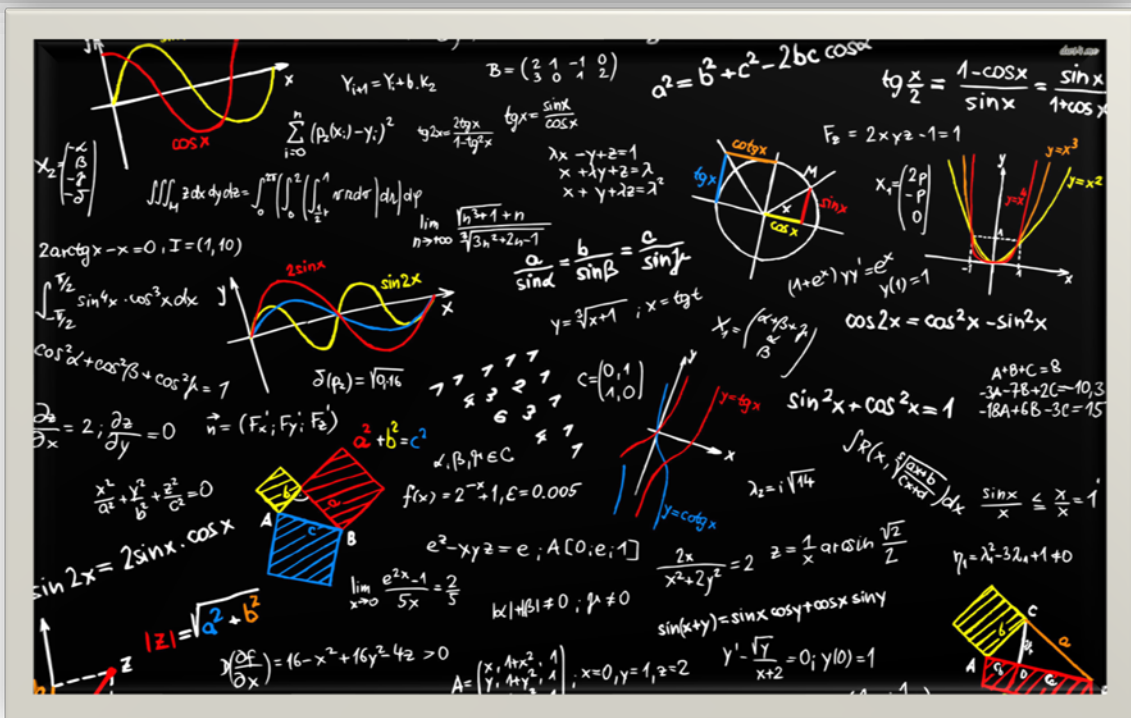 cos x
x
Y_{i+1} = Y_i + b.k_2
B = (2 1 -1 0
3 0 1 2)
a² = b² + c² - 2bc cosα
tg x/2 = (1-cosx)/sinx = sinx/(1+cosx
∑_{i=0}^{n} (p_2(x_i) - y_i)²
tg2x = 2tgx/(1-tg²x)
tgx = sinx/cosx
F_z = 2xyz - 1 = 1
λx - y + z = 1
x + λy + z = λ
x + y + λz = λ²
cotgx
tgx
M
x
sinx
cosx
X_1 = (2p
-p
0)
y
y=x³
y=x²
1
-1
x
2arctgx - x = 0, I = (1,10)
lim_{n→+∞}
a/sinα = b/sinβ = c/sinγ
(1+e^x) yy' = e^x
y(1) = 1
∫_{-π/2}^{π/2} sin⁴x·cos³x dx
y
2sinx
sin2x
x
y = ∛(x+1) ; x = tgt
X_1 = (α+β+γ
α
β)
cos2x = cos²x - sin²x
cos²α + cos²β + cos²γ = 1
δ(p_2) = √0,16
C = (0,1
1,0)
y
y=tgx
x
y=cotgx
sin²x + cos²x = 1
A+B+C = 8
-3A-7B+2C = -10,3
-18A+6B-3C = 15
∂z/∂x = 2 ; ∂z/∂y = 0
n⃗ = (F_x'; F_y'; F_z')
a² + b² = c²
b
a
c
A
B
α, β, γ ∈ C
∫R(x,
dx
x²/a² + y²/b² + z²/c² = 0
f(x) = 2^{-x} + 1, ε = 0.005
λ_2 = i√14
sinx/x ≤ x/x = 1
sin 2x = 2sinx·cosx
e^z - xyz = e ; A[0;e;1]
2x/(x²+2y²) = 2
z = 1/x arcsin √2/2
η_1 = λ_1² - 3λ_1 + 1 ≠ 0
lim_{x→0} (e^{2x}-1)/5x = 2/5
|α|+|β| ≠ 0 ; γ ≠ 0
sin(x+y) = sinx cosy + cosx siny
|z| = √(a² + b²)
z
(∂f/∂x) = 16 - x² + 16y² - 4z > 0
A = (x, 1+x², 1
y, 1+y², 1
; x=0, y=1, z=2
y' - √y/(x+2) = 0; y(0) = 1
b
C
a
A